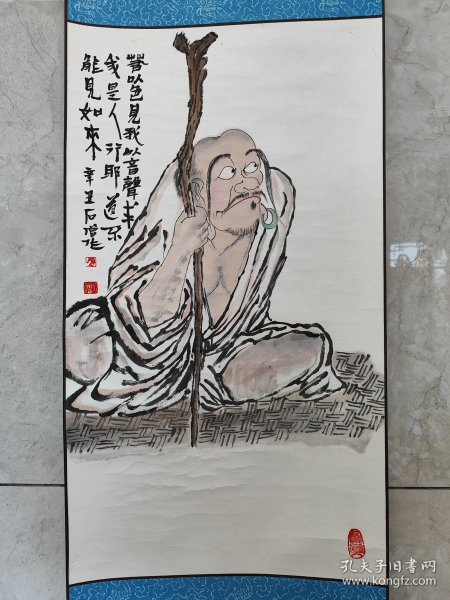 若以色見我以音聲求
我是人行耶道不
能見如來 辛丑石
孔夫子旧书网
www.kongfz.com